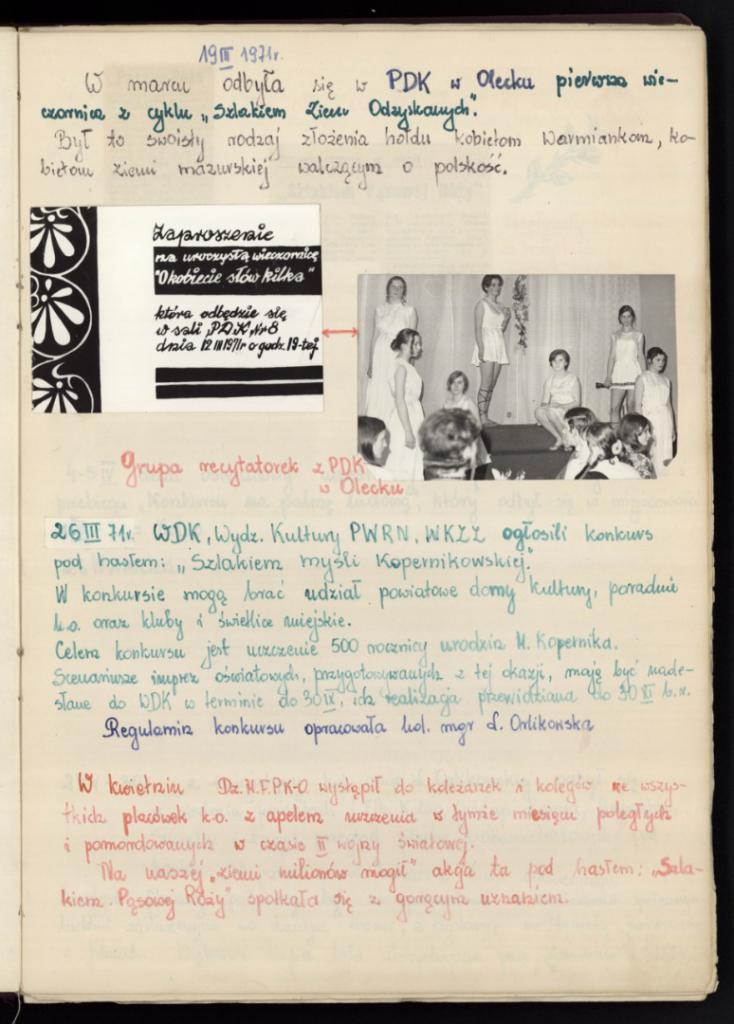 19 III 1971r.
W marcu odbyła się w PDK w Olecku pierwsza wie-
czornica z cyklu „Szlakiem Ziem Odzyskanych".
Był to swoisty rodzaj złożenia hołdu kobietom Warmiankom, ko-
bietom ziemi mazurskiej walczącym o polskość.
Zaproszenie
na uroczystą wieczornicę
"O kobiecie słów kilka"
która odbędzie się
w sali PDK Nr 8
dnia 12 III 1971r o godz. 19-tej
Grupa recytatorek z PDK
w Olecku
26 III 71r. WDK, Wydz. Kultury PWRN, WKZZ ogłosili konkurs
pod hasłem: „Szlakiem myśli Kopernikowskiej."
W konkursie mogą brać udział powiatowe domy kultury, poradnie
k.o. oraz kluby i świetlice miejskie.
Celem konkursu jest uczczenie 500 rocznicy urodzin M. Kopernika.
Scenariusze imprez oświatowych, przygotowywanych z tej okazji, mają być nade-
słane do WDK w terminie do 30 IX, ich realizacja przewidziana do 30 XI b.r.
Regulamin konkursu opracowała kol. mgr L. Orlikowska
W kwietniu Dz.N.F.PK-O wystąpił do koleżanek i kolegów ze wszys-
tkich placówek k.o. z apelem uczczenia w tymże miesiącu poległych
i pomordowanych w czasie II wojny światowej.
Na naszej „ziemi milionów mogił" akcja ta pod hasłem: „Szla-
kiem Pąsowej Róży" spotkała się z gorącym uznaniem.